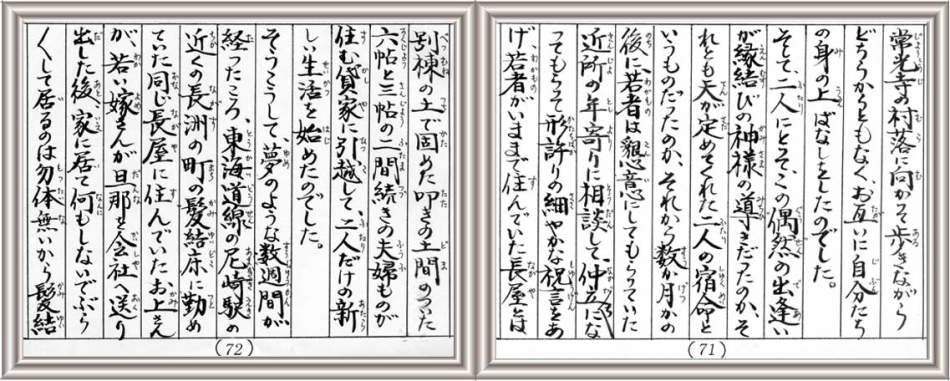 常光寺の村落に向かって歩きながら
どちらからともなく、お互いに自分たち
の身の上ばなしをしたのでした。
そして、二人にとって、この偶然の出逢い
が縁結びの神様の導きだったのか、そ
れとも天が定めてくれた二人の宿命と
いうものだったのか、それから数か月かの
後に若者は懇意にしてもらっていた
近所の年寄りに相談して、仲立にな
ってもらって形許りの細やかな祝言をあ
げ、若者がいままで住んでいた長屋とは
(71)
別棟の土で固めた叩きの土間のついた
六帖と三帖の二間続きの夫婦ものが
住む貸家に引越して、二人だけの新
しい生活を始めたのでした。
そうこうして、夢のような数週間が
経ったころ、東海道線の尼崎駅の
近くの長洲の町の髪結床に勤め
ていた同じ長屋に住んでいたお上さん
が、若い嫁さんが旦那を会社へ送り
出した後、家に居て何もしないでぶら
〱して居るのは勿体無いから髪結
(72)